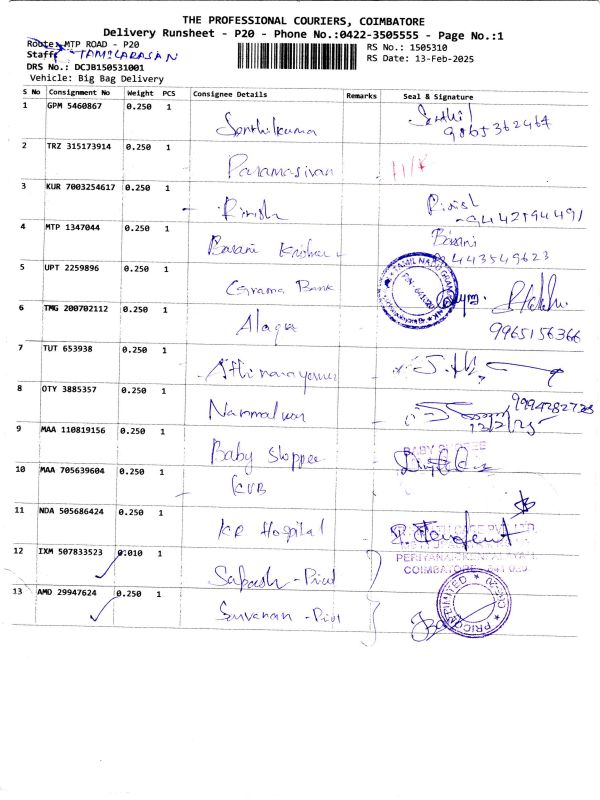 THE PROFESSIONAL COURIERS, COIMBATORE
Delivery Runsheet - P20 - Phone No.:0422-3505555 - Page No.:1
Route: MTP ROAD - P20
RS No.: 1505310
Staff: TAMILARASAN
RS Date: 13-Feb-2025
DRS No.: DCJB150531001
Vehicle: Big Bag Delivery
S No Consignment No Weight PCS Consignee Details Remarks Seal & Signature
1 GPM 5460867 0.250 1 Senthilkuma Senthil
9865362464
2 TRZ 315173914 0.250 1 Paramasivan
3 KUR 7003254617 0.250 1 Rinish Rinish
9442194491
4 MTP 1347044 0.250 1 Bavani Krishna Bavani
9443549623
5 UPT 2259896 0.250 1 Grama Bank TAMIL NADU GRAMA BANK
6 TMG 200702112 0.250 1 Alaga 9965156366
7 TUT 653938 0.250 1 Athinarayanan
8 OTY 3885357 0.250 1 Narmalvan 9994282723
12/2/25
9 MAA 110819156 0.250 1 Baby Shoppee BABY SHOPEE
10 MAA 705639604 0.250 1 KVB
11 NDA 505686424 0.250 1 KR Hospital
12 IXM 507833523 0.010 1 Sapash - Picol COIMBATORE
13 AMD 29947624 0.250 1 Suvanan - Picol PRICOL LIMITED